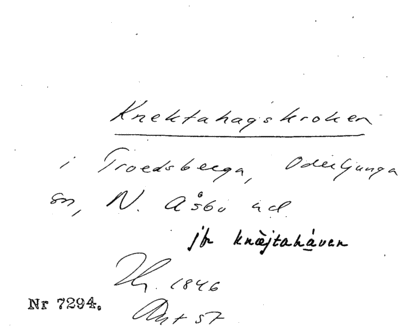 Knektahagskroken
i Troedsberga, Oderljunga
sn, N. Åsbo hd.
jfr knäjtahåven
1846
Nr 7294.